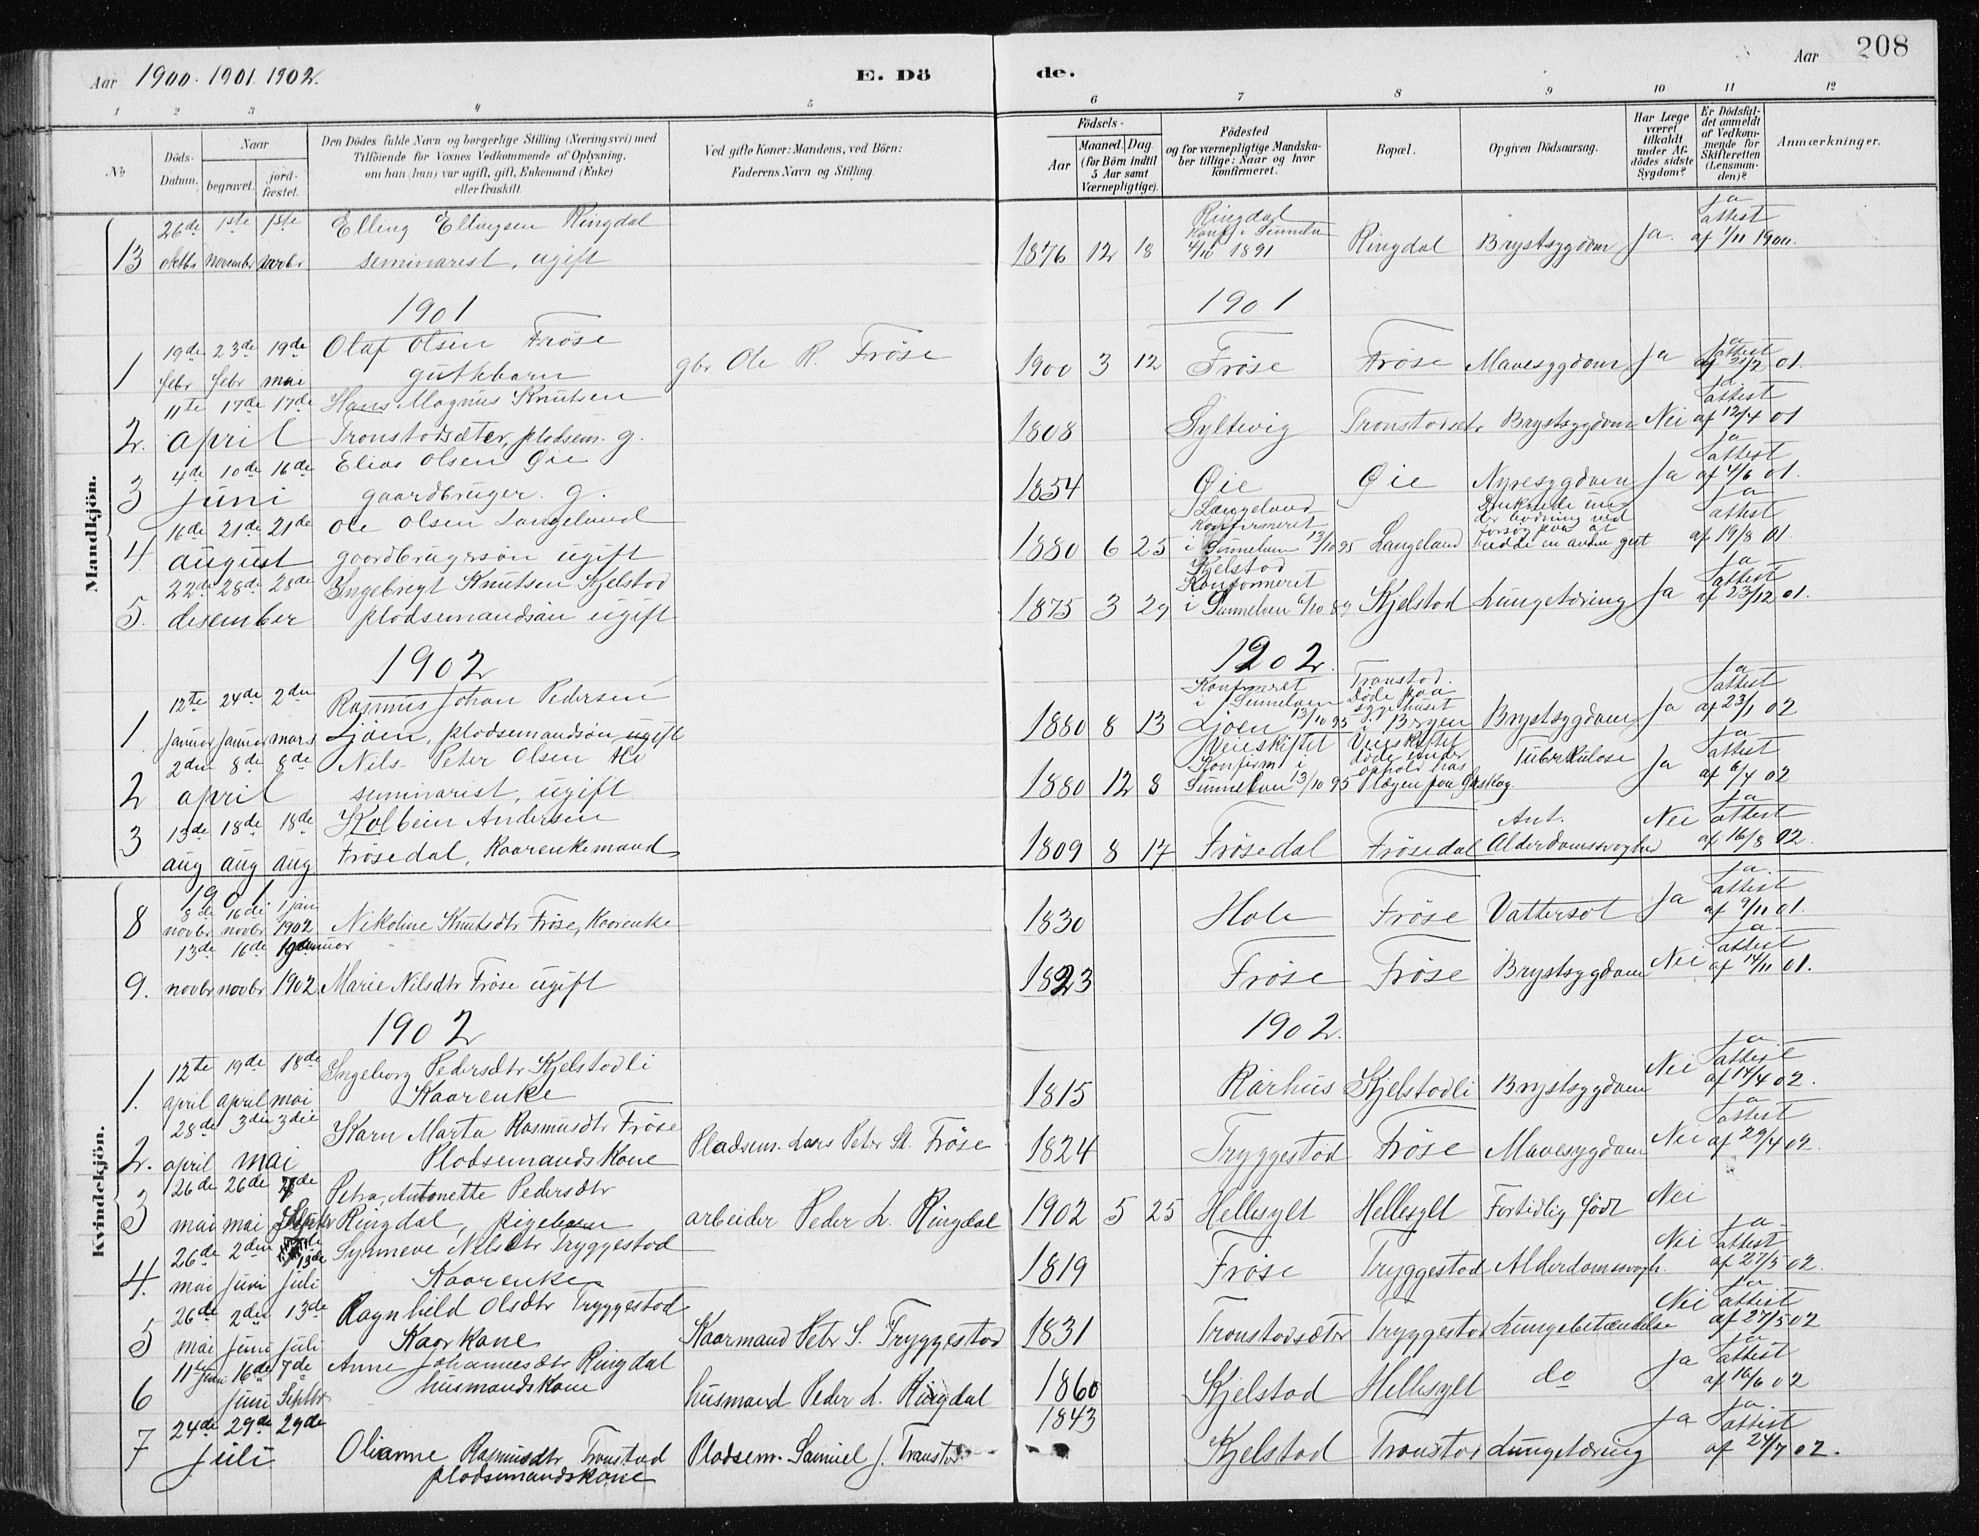 Aar 1900. 1901. 1902. E. Dö de. Aar 208
1 2 3 4 5 6 7 8 9 10 11 12
№ Döds-Datum. Naar begravet. jord-fæstet. Den Dödes fulde Navn og borgerlige Stilling (Næringsvei) med Tilföiende for Voxnes Vedkommende af Oplysning, om han (hun) var ugift, gift, Enkemand (Enke) eller fraskilt. Ved gifte Koner: Mandens, ved Börn: Faderens Navn og Stilling. Födsels- Aar Maaned. Dag. (for Börn indtil 5 Aar samt Værnepligtige). Födested og for værnepligtige Mandska-ber tillige: Naar og hvor konfirmeret. Bopæl. Opgiven Dödsaarsag. Har Læge været tilkaldt under Af-dödes sidste Sygdom? Er Dödsfal-det anmeldt af Vedkom-mende for Skifteretten (Lensman-den)? Anmærkninger.
Mandkjön.
13 26de oktbr 1ste november 1ste novbr Elling Ellingsen Ringdal seminarist, ugift 1876 12 18 Ringdal Konf. i Sunnelv 4/10 1891 Ringdal Brystsygdom Ja. Ja attest af 1/11 1900.
1901 1901
1 19de febr 23de febr 19de mai Olaf Olsen Frøse gutbarn gbr Ole R. Frøse 1900 3 12 Frøse Frøse Mavesygdom Ja Ja attest af 21/2 01.
2. 11te 17de 17de april Hans Magnus Knutsen Tronstodsæter, plodsm. g. 1808 Gyltevig Tronstodsetr Brystsygdom Nei Ja attest af 12/4 01
3 4de 10de 16de juni Elias Olsen Øie gaardbruger. g. 1854 Øie Øie Nyresygdom Ja Ja attest af 4/6 01.
4. 16de 21de 21de august Ole Olsen Langeland goordbrugersøn ugift 1880 6 25 Langeland Konfirmeret i Sunnelven 13/10 95 Langeland Ja attest af 19/8 01
5. 22de 28de 28de desember Ingebregt Knutsen Kjelstod plodsemandsøn ugift 1875 3 29 Kjelstod Konformeret i Sunnelven 6/10 89 Kjelstod Lungetæring Ja Ja attest af 23/12 01.
1902 1902.
1. 12te januar 24de januar 2den mars Rasmus Johan Pedersen Ljøen, plodsemandsøn ugift 1880 8 13 Konfirmeret i Sunnelven Ljøen 13/10 95 Tronstod. Døde paa sygehuset i Bergen Brystsygdom Ja Ja attest af 23/1 02
2 2den 8de 8de april Nils Peter Olsen seminarist, ugift 1880 12 8 Veieskiftet Konfirm i Sunnelven 13/10 95 Veieskiftet døde under ophold hos Tuberkulose Ja Ja attest af 6/4 02
3 13de aug 18de aug 18de aug Kolbein Andersen Frøsedal, Kaarenkemand 1809 8 17 Frøsedal Frøsedal Ant. Alderdomssvaghed Nei Ja attest af 16/8 02.
Kvindekjön.
1901
8 8de novbr 16de novbr 1 jan 1902 Nikoline Knutsdtr Frøse, Kaarenke 1830 Hole Frøse Vattersot Ja Ja attest af 9/11 01.
9. 13de novbr 16de novbr januar 1902 Marie Nilsdtr Frøse ugift 1823 Frøse Frøse Brystsygdom Nei Ja attest af 14/11 01.
1902 1902.
1. 12te april 19de april 18de mai Ingeborg Pedersdtr Kjelstodli Kaarenke 1815 Rørhus Kjelstodli Brystsygdom Nei Ja attest af 14/4 02.
2. 28de april 3die 3die mai Karn Marta Rasmusdtr Frøse Plodsemandskone Pladsem. Lars Peter St. Frøse 1824 Tryggestod Frøse Mavesygdom Nei Ja attest af 29/4 02.
3 26de mai 26de mai 7de Septbr Petra, Antonette Pedersdtr Ringdal, pigebarn arbeider Peder L. Ringdal 1902 5 25 Hellesylt Hellesylt Fortidlig født Nei
4. 26de mai 2den juni 13de juli Synneve Nilsdtr Tryggestod Kaarenke 1819 Frøse Tryggestod Alderdomssvagh. Nei Ja attest af 27/5 02.
5 26de mai 2den juni 13de juli Ragnhild Olsdtr Tryggestod Kaarkone Kaarmand Petr S. Tryggestod 1831 Tronstodsæter Tryggestod Lungebetændelse Nei Ja attest af 27/5 02
6 11te juni 16de juni 7de Septbr Anne Johannesdtr Ringdal husmandskone husmand Peder L. Ringdal 1860 Kjelstod Hellesylt do Ja Ja attest af 16/6 02
7 24de 29de 29de juli Olianne Rasmusdtr Tronstad plodsemandskone Plodsem. Samuel J. Tronstod 1843 Kjelstod Tronstod Lungetæring Ja Ja attest af 24/7 02.